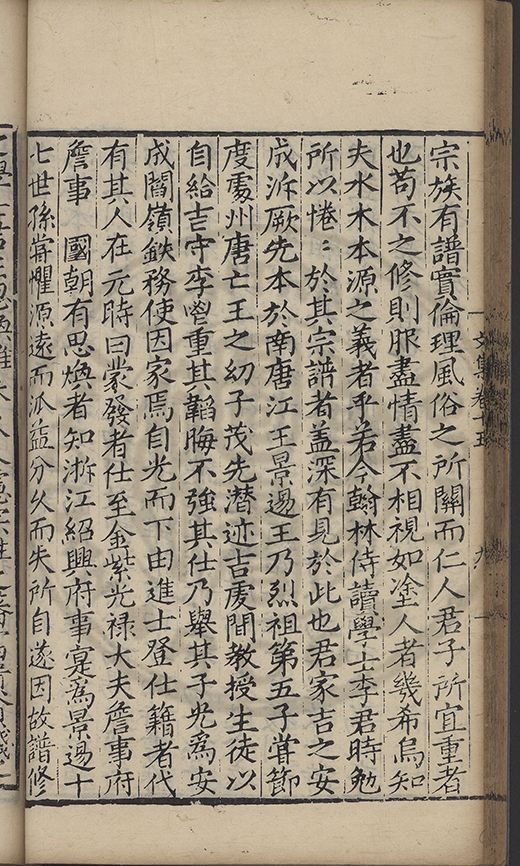 宗族有譜實倫理風俗之所關而仁人君子所宜重者
也苟不之修則服盡情盡不相視如塗人者幾希烏知
夫水木本源之義者乎若今翰林侍讀學士李君時勉
所以惓〻於其宗譜者盖深有見於此也君家吉之安
成泝厥先本於南唐江王景逿王乃烈祖第五子甞節
度䖏州唐亡王之幼子茂先潛迹吉䖏間教授生徒以
自給吉守李 重其韜晦不強其仕乃舉其子光爲安
成閻嶺鉄務使因家焉自光而下由進士登仕籍者代
有其人在元時曰䝉發者仕至金紫光禄大夫詹事府
詹事　國朝有思煥者知浙江紹興府事寔爲景逿十
七世孫甞懼源遠而派益分乆而失所自遂因故譜修
文集卷十五
九